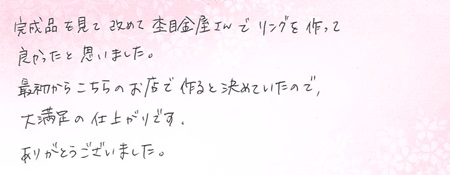 完成品を見て改めて杢目金屋さんでリングを作って
良かったと思いました。
最初からこちらのお店で作ると決めていたので、
大満足の仕上がりです。
ありがとうございました。